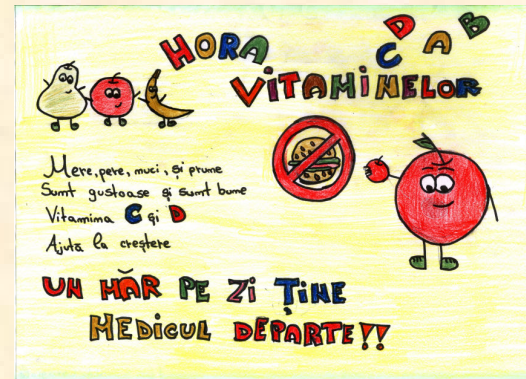 HORA
VITAMINELOR
D C A B
Mere, pere, nuci, și prune
Sunt gustoase și sunt bune
Vitamina C și D
Ajută la creștere
UN MĂR PE ZI ȚINE
MEDICUL DEPARTE!!